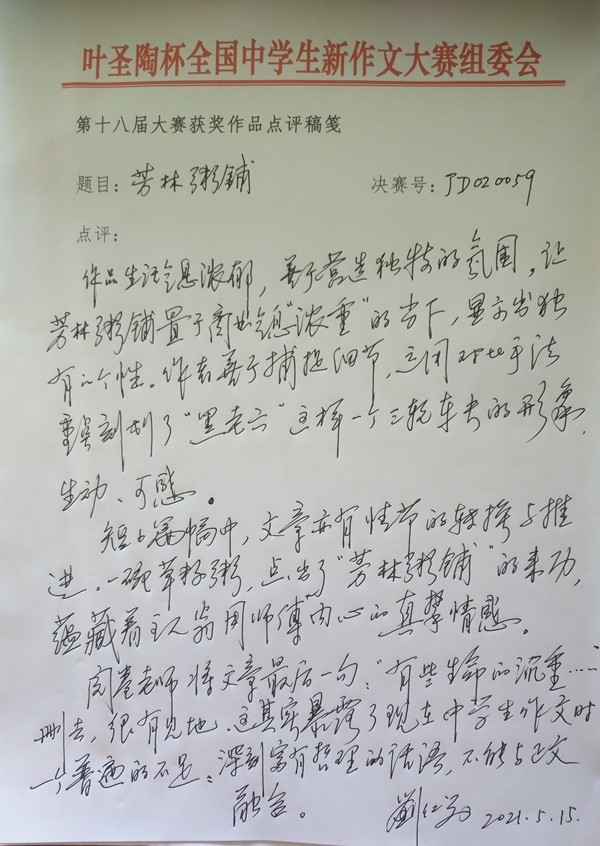 叶圣陶杯全国中学生新作文大赛组委会
第十八届大赛获奖作品点评稿笺
题目：芳林粥铺 决赛号：JD020059
点评：
作品生活气息浓郁，善于营造独特的氛围，让
芳林粥铺置于商业气息“浓重”的当下，显示出独
有的个性。作者善于捕捉细节，运用对比手法
重点刻划了“黑老六”这样一个三轮车夫的形象，
生动、可感。
短小篇幅中，文章亦有情节的转换与推
进。一碗草籽粥，点出了“芳林粥铺”的来功，
蕴藏着主人翁周师傅内心的真挚情感。
阅卷老师将文章最后一句：“有些生命的沉重……
删去，很有见地。这其实暴露了现在中学生作文时
一个普遍的不足：深刻富有哲理的话语，不能与正文
融合。
2021.5.15.